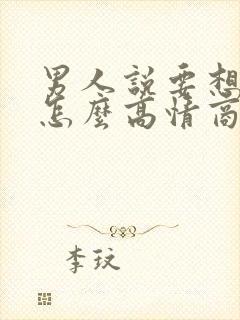 男人說要想
怎麼高情商
李玟